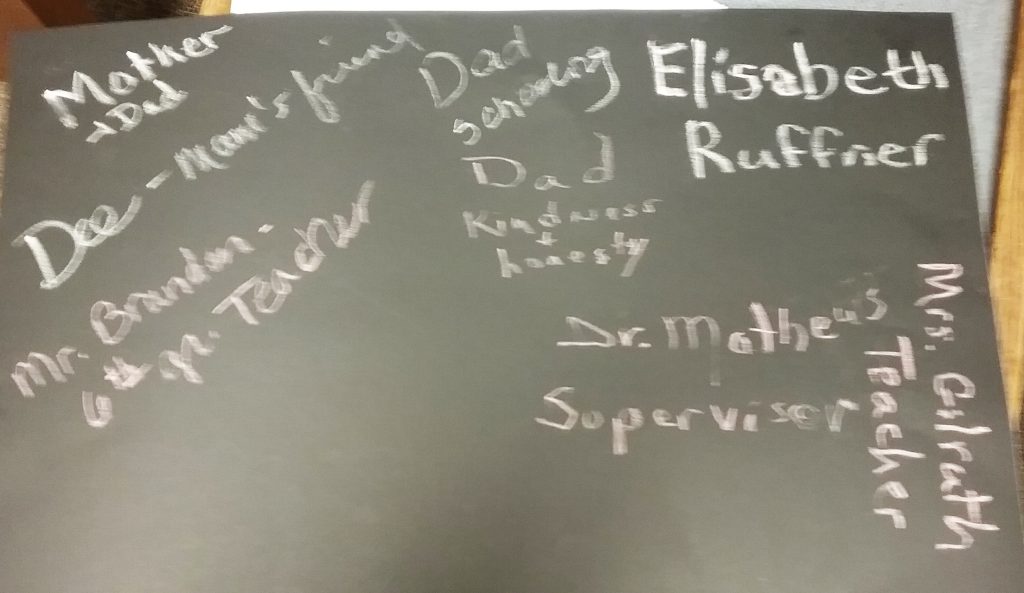 Mother
+ Dad
Dee - Mom's friend
Mr. Brandon -
6th gr. Teacher
Dad
schooling
Dad
Kindness
+
honesty
Elisabeth
Ruffner
Dr. Mathews
Supervisor
Mrs. Gilrath
Teacher